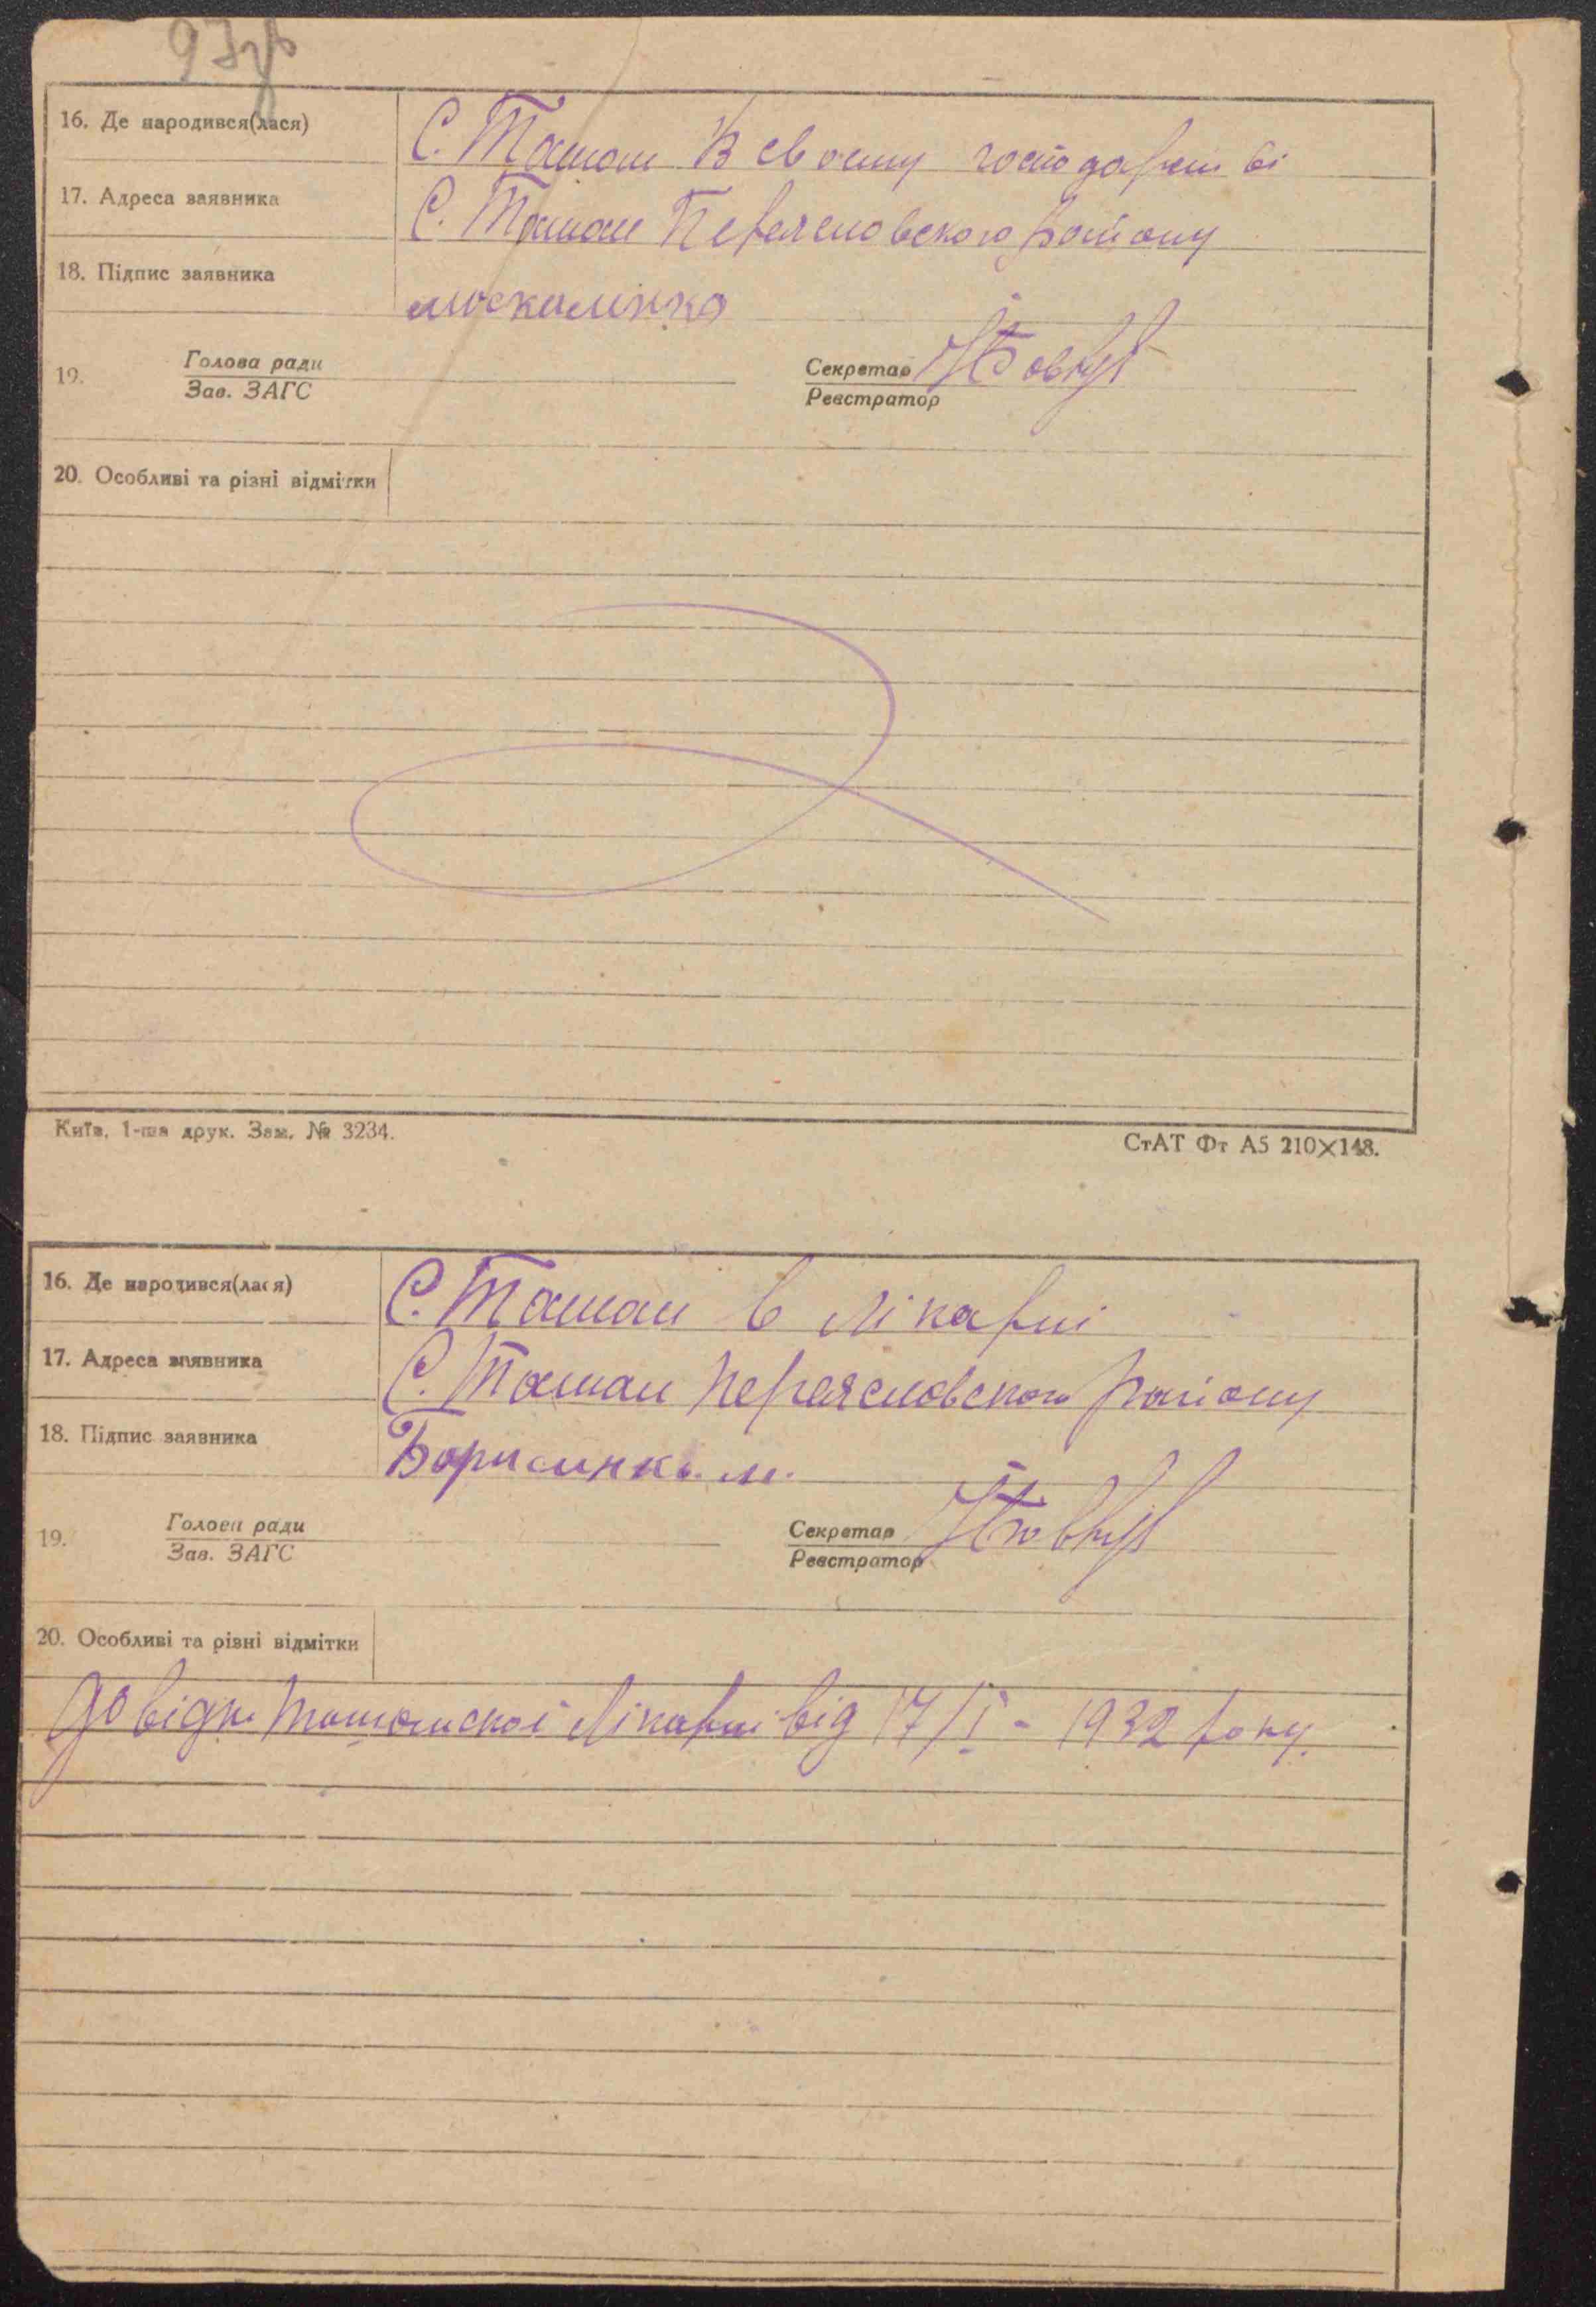 97зв
16. Де народився(лася) С. Ташан В своєму господарстві
17. Адреса заявника С. Ташан Переяславского Району
18. Підпис заявника москаленко
Голова ради Секретар
19. Зав. ЗАГС Реєстратор
20. Особливі та різні відмітки
Київ, 1-ша друк. Зам. № 3234. СтАТ Фт А5 210×148.
16. Де народився(лася) С. Ташан в лікарні
17. Адреса заявника С. Ташан Переясловского району
18. Підпис заявника Борисинко. м.
Голова ради Секретар
19. Зав. ЗАГС Реєстратор
20. Особливі та різні відмітки
Довідк. Ташанскої лікарні від 17/I - 1932 року.